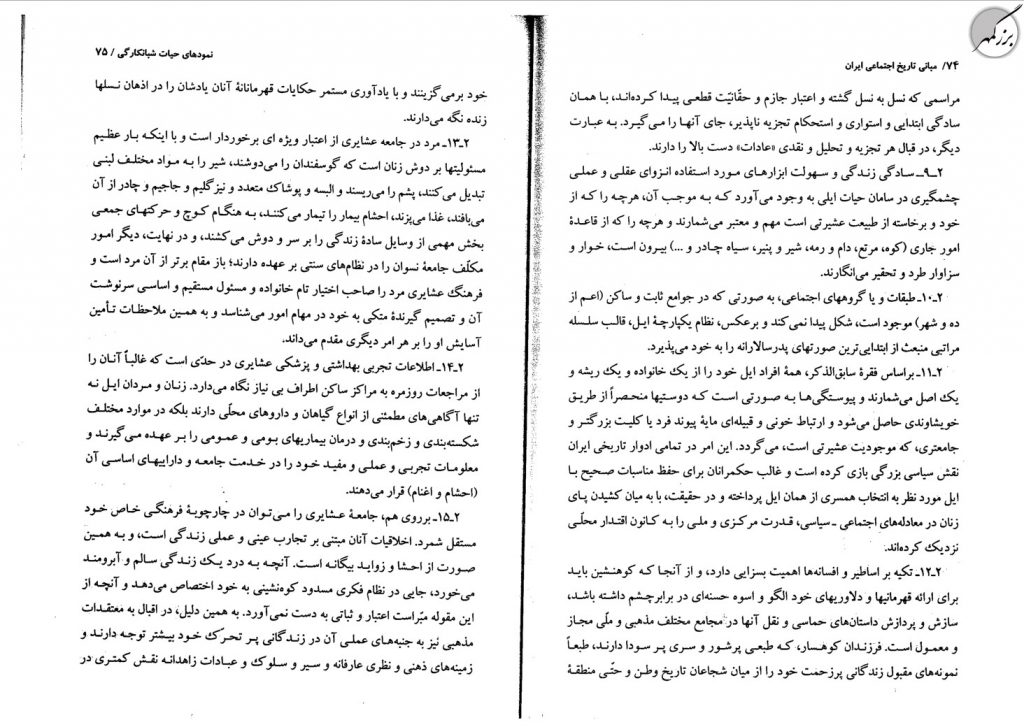 بزرگمهر
۷۴/ مبانی تاریخ اجتماعی ایران
مراسمی که نسل به نسل گشته و اعتبار جازم و حقّانیّت قطعی پیدا کرده‌اند، با همان
سادگی ابتدایی و استواری و استحکام تجزیه ناپذیر، جای آنها را می‌گیرد. به عبارت
دیگر، در قبال هر تجزیه و تحلیل و نقدی «عادات» دست بالا را دارند.
۲ـ۹ـ سادگی زندگی و سهولت ابزارهای مورد استفاده انزوای عقلی و عملی
چشمگیری در سامان حیات ایلی به وجود می‌آورد که به موجب آن، هرچه را که از
خود و برخاسته از طبیعت عشیرتی است مهم و معتبر می‌شمارند و هرچه را که از قاعدهٔ
امور جاری (کوه، مرتع، دام و رمه، شیر و پنیر، سیاه چادر و ...) بیرون است، خوار و
سزاوار طرد و تحقیر می‌انگارند.
۲ـ۱۰ـ طبقات و یا گروههای اجتماعی، به صورتی که در جوامع ثابت و ساکن (اعم از
ده و شهر) موجود است، شکل پیدا نمی‌کند و برعکس، نظام یکپارچهٔ ایل، قالب سلسله
مراتبی منبعث از ابتدایی‌ترین صورتهای پدرسالارانه را به خود می‌پذیرد.
۲ـ۱۱ـ براساس فقرهٔ سابق‌الذکر، همهٔ افراد ایل خود را از یک خانواده و یک ریشه و
یک اصل می‌شمارند و پیوستگی‌ها به صورتی است که دوستیها منحصراً از طریق
خویشاوندی حاصل می‌شود و ارتباط خونی و قبیله‌ای مایهٔ پیوند فرد یا کلیت بزرگتر و
جامعتری، که موجودیت عشیرتی است، می‌گردد. این امر در تمامی ادوار تاریخی ایران
نقش سیاسی بزرگی بازی کرده است و غالب حکمرانان برای حفظ مناسبات صحیح با
ایل مورد نظر به انتخاب همسری از همان ایل پرداخته و در حقیقت، با به میان کشیدن پای
زنان در معادله‌های اجتماعی ـ سیاسی، قدرت مرکزی و ملی را به کانون اقتدار محلّی
نزدیک کرده‌اند.
۲ـ۱۲ـ تکیه بر اساطیر و افسانه‌ها اهمیت بسزایی دارد، و از آنجا که کوهنشین باید
برای ارائه قهرمانیها و دلاوریهای خود الگو و اسوه حسنه‌ای در برابرچشم داشته باشد،
سازش و پردازش داستان‌های حماسی و نقل آنها در مجامع مختلف مذهبی و ملّی مجاز
و معمول است. فرزندان کوهسار، که طبعی پرشور و سری پر سودا دارند، طبعاً
نمونه‌های مقبول زندگانی پرزحمت خود را از میان شجاعان تاریخ وطن و حتّی منطقهٔ
نمودهای حیات شبانکارگی / ۷۵
خود برمی‌گزینند و با یادآوری مستمر حکایات قهرمانانهٔ آنان یادشان را در اذهان نسلها
زنده نگه می‌دارند.
۲ـ۱۳ـ مرد در جامعه عشایری از اعتبار ویژه ای برخوردار است و با اینکه بار عظیم
مسئولیتها بر دوش زنان است که گوسفندان را می‌دوشند، شیر را به مواد مختلف لبنی
تبدیل می‌کنند، پشم را می‌ریسند و البسه و پوشاک متعدد و نیزگلیم و جاجیم و چادر از آن
می‌بافند، غذا می‌پزند، احشام بیمار را تیمار می‌کنند، به هنگام کوچ و حرکتهای جمعی
بخش مهمی از وسایل سادهٔ زندگی را بر سر و دوش می‌کشند، و در نهایت، دیگر امور
مکلّف جامعهٔ نسوان را در نظام‌های سنتی بر عهده دارند؛ باز مقام برتر از آن مرد است و
فرهنگ عشایری مرد را صاحب اختیار تام خانواده و مسئول مستقیم و اساسی سرنوشت
آن و تصمیم گیرندهٔ متکی به خود در مهام امور می‌شناسد و به همین ملاحظات تأمین
آسایش او را بر هر امر دیگری مقدم می‌داند.
۲ـ۱۴ـ اطلاعات تجربی بهداشتی و پزشکی عشایری در حدّی است که غالباً آنان را
از مراجعات روزمره به مراکز ساکن اطراف بی نیاز نگاه می‌دارد. زنان و مردان ایل نه
تنها آگاهی‌های مطمئنی از انواع گیاهان و داروهای محلّی دارند بلکه در موارد مختلف
شکسته‌بندی و زخم‌بندی و درمان بیماریهای بومی و عمومی را بر عهده می‌گیرند و
معلومات تجربی و عملی و مفید خود را در خدمت جامعه و داراییهای اساسی آن
(احشام و اغنام) قرار می‌دهند.
۲ـ۱۵ـ برروی هم، جامعهٔ عشایری را می‌توان در چارچوبهٔ فرهنگی خاص خود
مستقل شمرد. اخلاقیات آنان مبتنی بر تجارب عینی و عملی زندگی است، و به همین
صورت از احشا و زواید بیگانه است. آنچه به درد یک زندگی سالم و آبرومند
می‌خورد، جایی در نظام فکری مسدود کوه‌نشینی به خود اختصاص می‌دهد و آنچه از
این مقوله مبّراست اعتبار و ثباتی به دست نمی‌آورد. به همین دلیل، در اقبال به معتقدات
مذهبی نیز به جنبه‌های عملی آن در زندگانی پر تحرّک خود بیشتر توجه دارند و
زمینه‌های ذهنی و نظری عارفانه و سیر و سلوک و عبادات زاهدانه نقش کمتری در